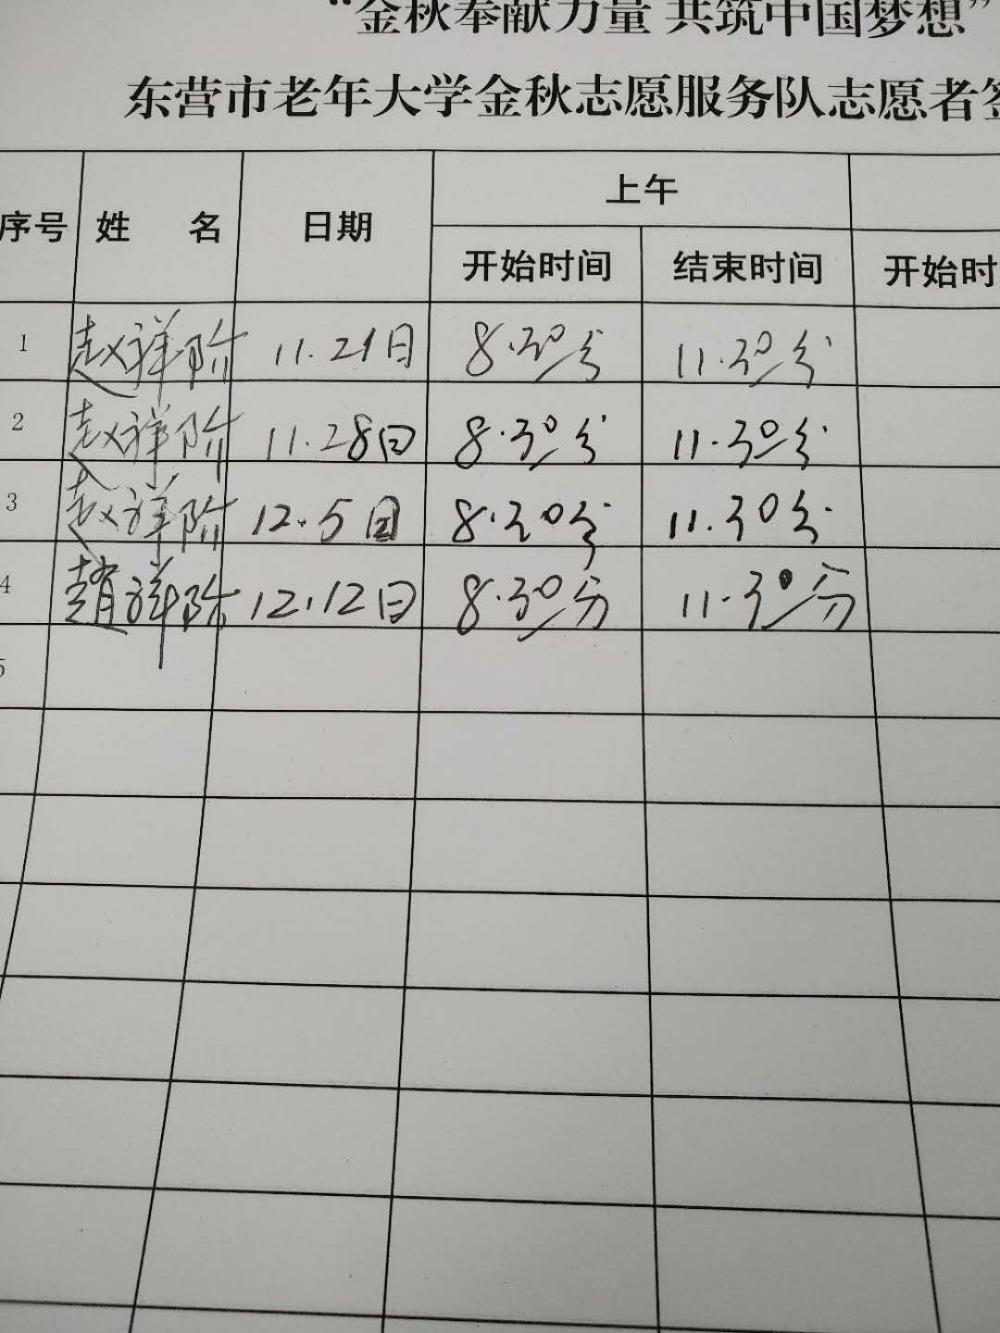 “金秋奉献力量 共筑中国梦想”
东营市老年大学金秋志愿服务队志愿者签
序号 姓 名 日期 上午
开始时间 结束时间 开始时
1 赵祥阶 11.21日 8.30分 11.30分
2 赵祥阶 11.28日 8.30分 11.30分
3 赵祥阶 12.5日 8.30分 11.30分
4 趙祥阶 12.12日 8.30分 11.30分
5